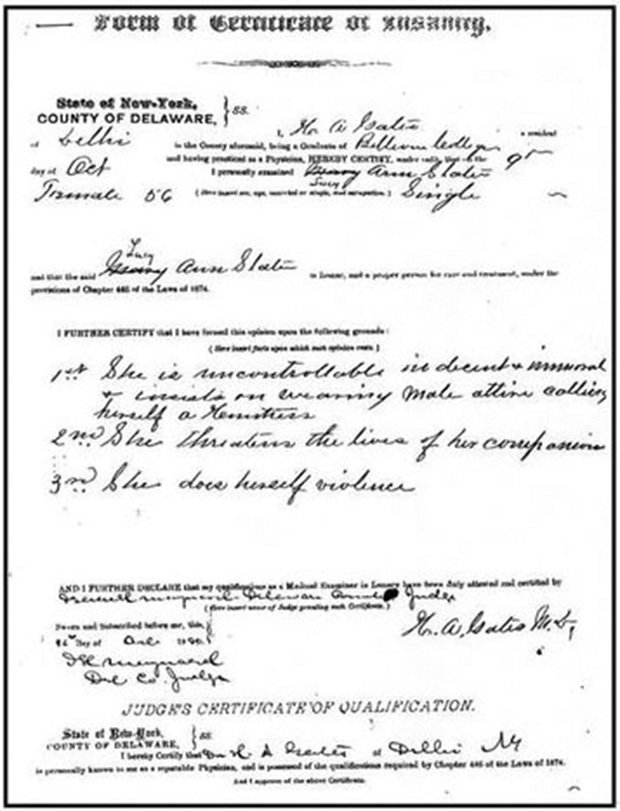 Form of Certificate of Insanity.
State of New-York,
COUNTY OF DELAWARE, } ss.
I, H. A. Gates a resident
of Delhi in the County aforesaid, being a Graduate of Bellevue College
and having practiced as a Physician, HEREBY CERTIFY, under oath, that on the 9th
day of Oct I personally examined Lucy Ann Slater
Female 56 (Here insert sex, age, married or single, and occupation.) Single
and that the said Lucy Ann Slater is insane, and a proper person for care and treatment, under the
provisions of Chapter 446 of the Laws of 1874.
I FURTHER CERTIFY that I have formed this opinion upon the following grounds:
(Here insert facts upon which such opinion rests.)
1st She is uncontrollable indecent & immoral
& insists on wearing male attire calling
herself a
2nd She threatens the lives of her companion
3rd She does herself violence
AND I FURTHER DECLARE that my qualifications as a Medical Examiner in Lunacy have been duly attested and certified by
Maynard Delaware Judge
(Here insert name of Judge granting such Certificate.)
Sworn and Subscribed before me, this
day of Oct 1880
H. A. Gates M.D.
Maynard
Del Co. Judge
JUDGE'S CERTIFICATE OF QUALIFICATION.
State of New-York,
COUNTY OF DELAWARE, } ss.
I hereby Certify that Dr H. A Gates of Delhi NY
is personally known to me as a reputable Physician, and is possessed of the qualifications required by Chapter 446 of the Laws of 1874.
And I approve of the above Certificate.